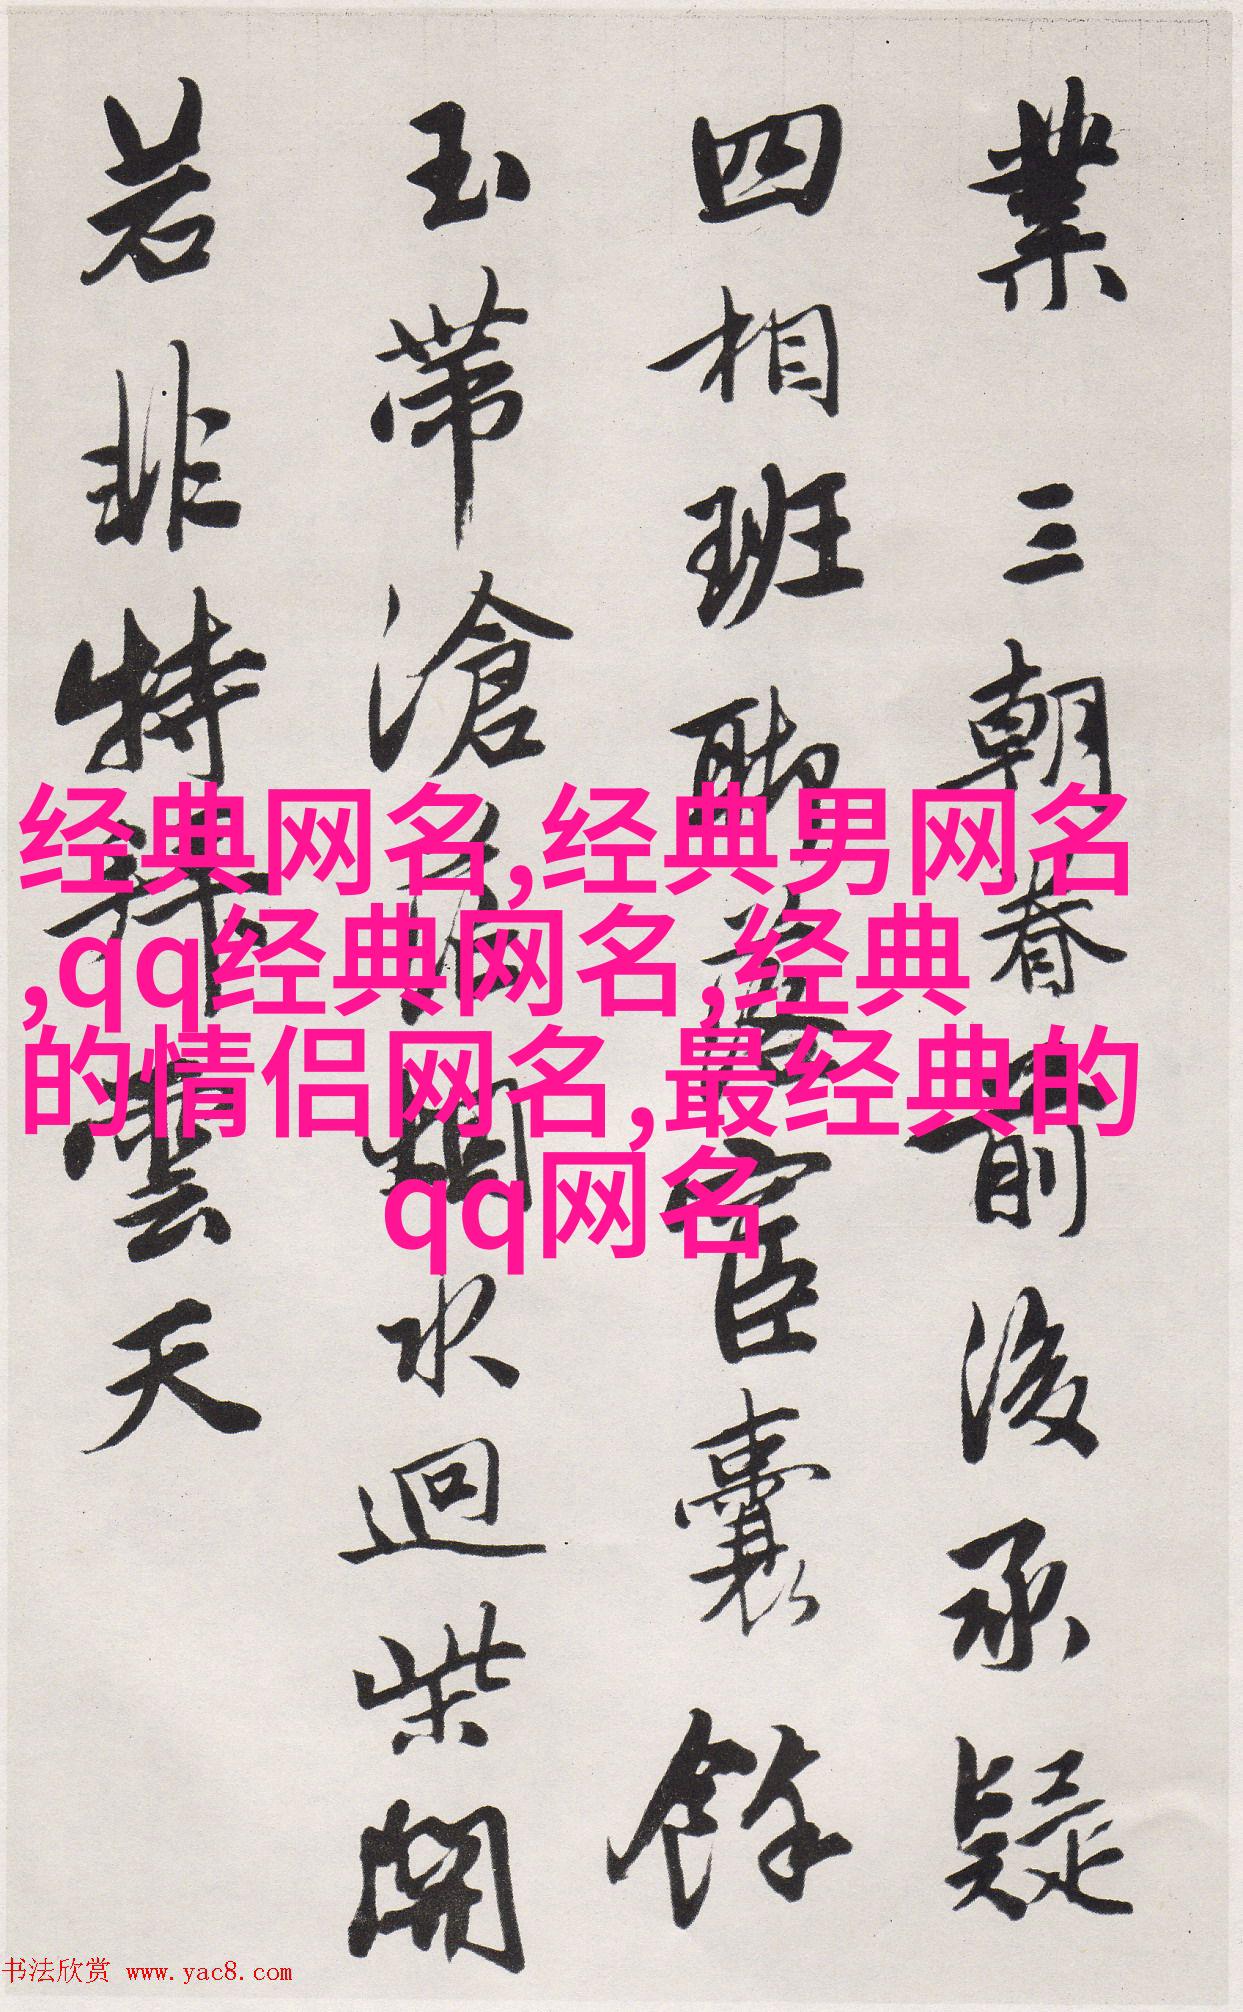 業 三朝前後承疑
四相班聯宦囊餘
玉帶滄水迥柴
若非特雲天
经典网名,经典男网名
,qq经典网名,经典
的情侣网名,最经典的
qq网名
书法欣赏 www.yac8.com